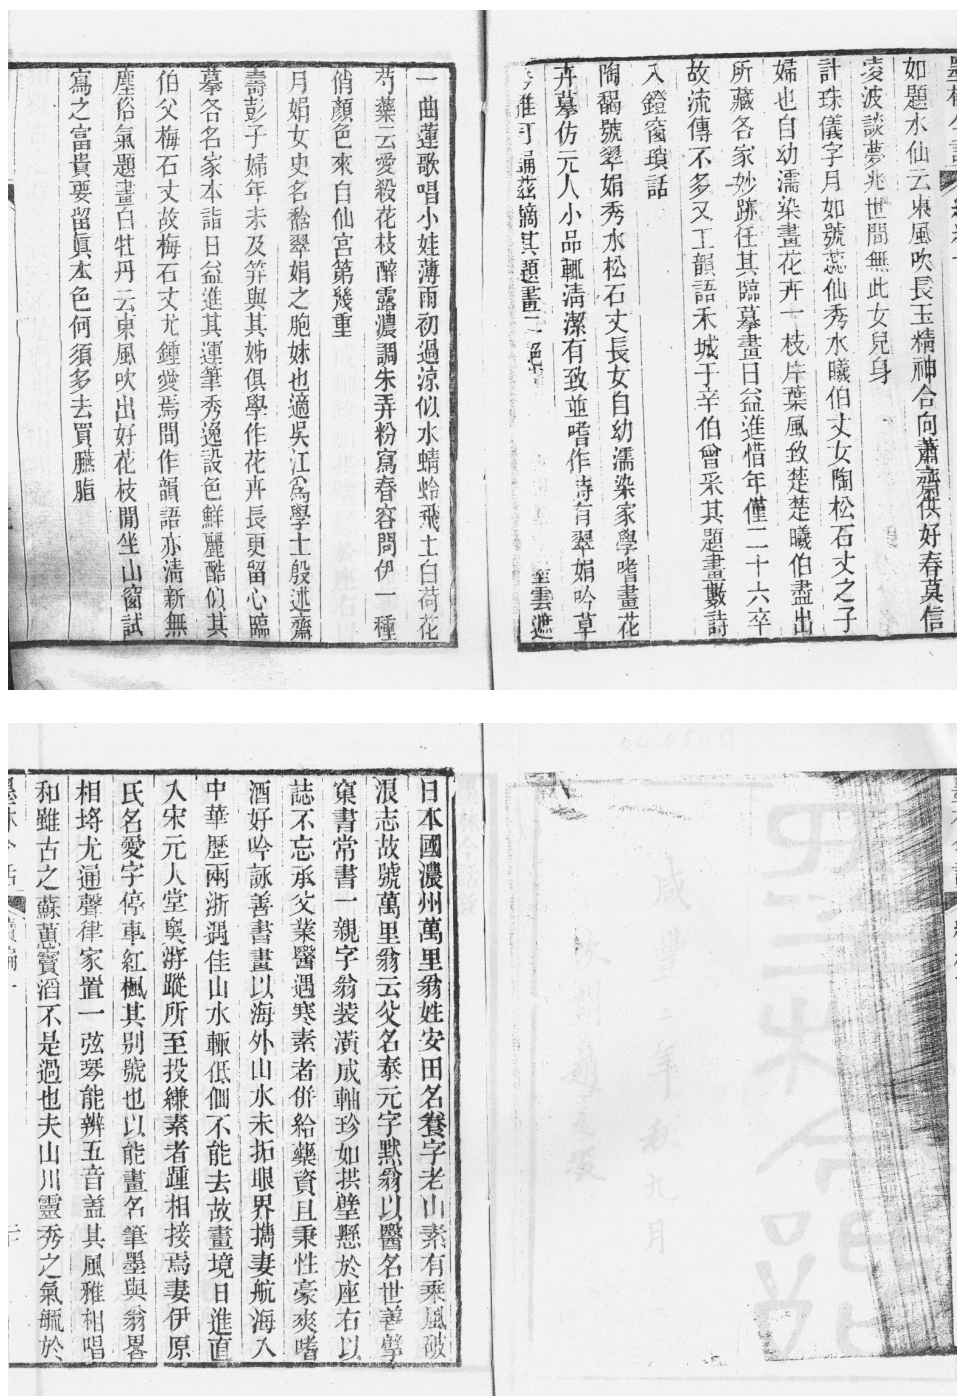 如題水仙云東風吹長玉精神合向蕭齋供好春莫信
凌波談夢兆世間無此女兒身
計珠儀字月如號蕊仙秀水曦伯丈女陶松石丈之子
婦也自幼濡染畫花卉一枝片葉風致楚楚曦伯盡出
所藏各家妙跡任其臨摹畫日益進惜年僅二十六卒
故流傳不多又工韻語禾城于辛伯曾采其題畫數詩
入鐙窗瑣話
陶馤號翠娟秀水松石丈長女自幼濡染家學嗜畫花
卉摹仿元人小品輒淸潔有致並嗜作詩有翠娟吟草
可誦茲摘其題畫二絕 雲遮
一曲蓮歌唱小娃薄雨初過涼似水蜻蛉飛上白荷花
芍藥云愛殺花枝醉露濃調朱弄粉寫春容問伊一種
俏顏色來自仙宮第幾重
月娟女史名馠翠娟之胞妹也適吳江爲學士殷述齋
壽彭子婦年未及笄與其姊俱學作花卉長更留心臨
摹各名家本詣日益進其運筆秀逸設色鮮麗酷似其
伯父梅石丈故梅石丈尤鍾愛焉間作韻語亦淸新無
塵俗氣題畫白牡丹云東風吹出好花枝閒坐山窗試
寫之富貴要留眞本色何須多去買臙脂
咸豐二年秋九月
日本國濃州萬里翁姓安田名養字老山素有乘風破
浪志故號萬里翁云父名泰元字默翁以醫名世善擘
窠書常書一親字翁装潢成軸珍如拱璧懸於座右以
誌不忘承父業醫遇寒素者併給藥資且秉性豪爽嗜
酒好吟詠善書畫以海外山水未拓眼界攜妻航海入
中華歷兩浙遇佳山水輒低佪不能去故畫境日進直
入宋元人堂奧游蹤所至投縑素者踵相接焉妻伊原
氏名愛字停車紅楓其别號也以能畫名筆墨與翁畧
相埒尤通聲律家置一弦琴能辨五音盖其風雅相唱
和雖古之蘇蕙竇滔不是過也夫山川靈秀之氣毓於